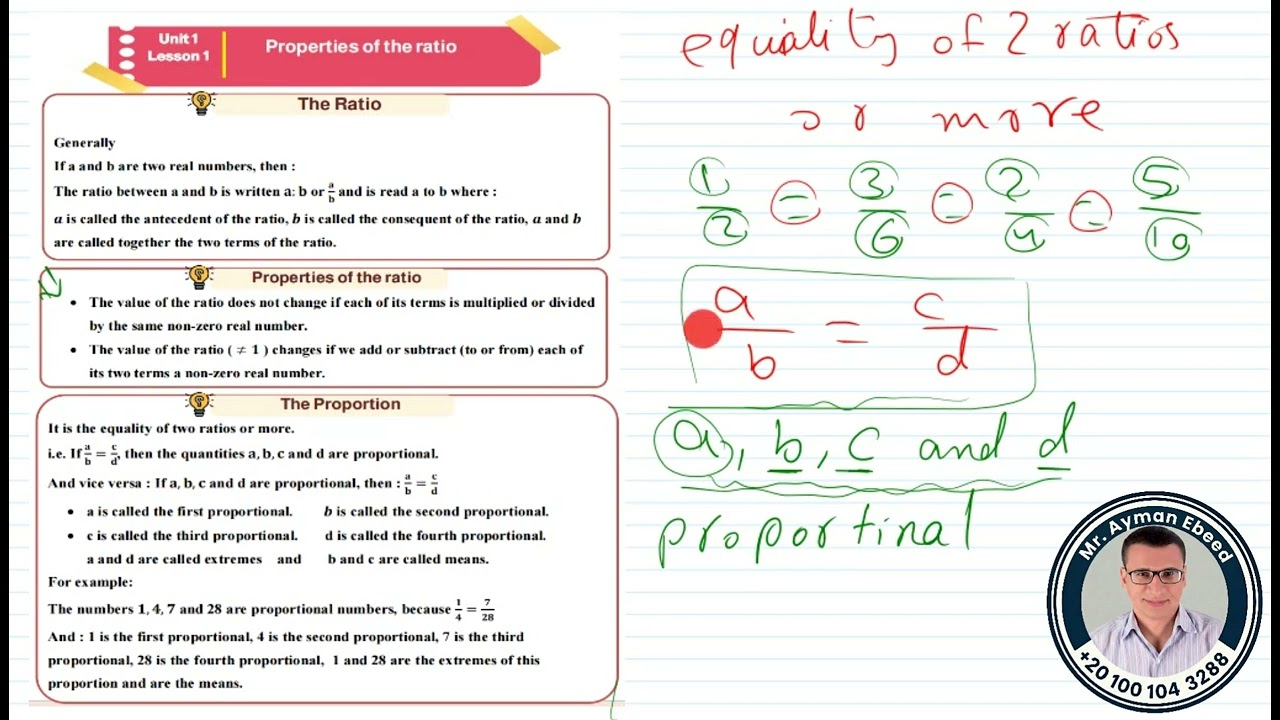 Unit 1
Lesson 1
Properties of the ratio
The Ratio
Generally
If a and b are two real numbers, then :
The ratio between a and b is written a: b or a/b and is read a to b where :
a is called the antecedent of the ratio, b is called the consequent of the ratio, a and b
are called together the two terms of the ratio.
Properties of the ratio
• The value of the ratio does not change if each of its terms is multiplied or divided
by the same non-zero real number.
• The value of the ratio ( ≠ 1 ) changes if we add or subtract (to or from) each of
its two terms a non-zero real number.
The Proportion
It is the equality of two ratios or more.
i.e. If a/b = c/d, then the quantities a, b, c and d are proportional.
And vice versa : If a, b, c and d are proportional, then : a/b = c/d
• a is called the first proportional. b is called the second proportional.
• c is called the third proportional. d is called the fourth proportional.
a and d are called extremes and b and c are called means.
For example:
The numbers 1, 4, 7 and 28 are proportional numbers, because 1/4 = 7/28
And : 1 is the first proportional, 4 is the second proportional, 7 is the third
proportional, 28 is the fourth proportional, 1 and 28 are the extremes of this
proportion and are the means.
equality of 2 ratios
or more
1/2 = 3/6 = 2/4 = 5/10
a/b = c/d
a, b, c and d
proportinal
Mr. Ayman Ebeed
+20 100 104 3288